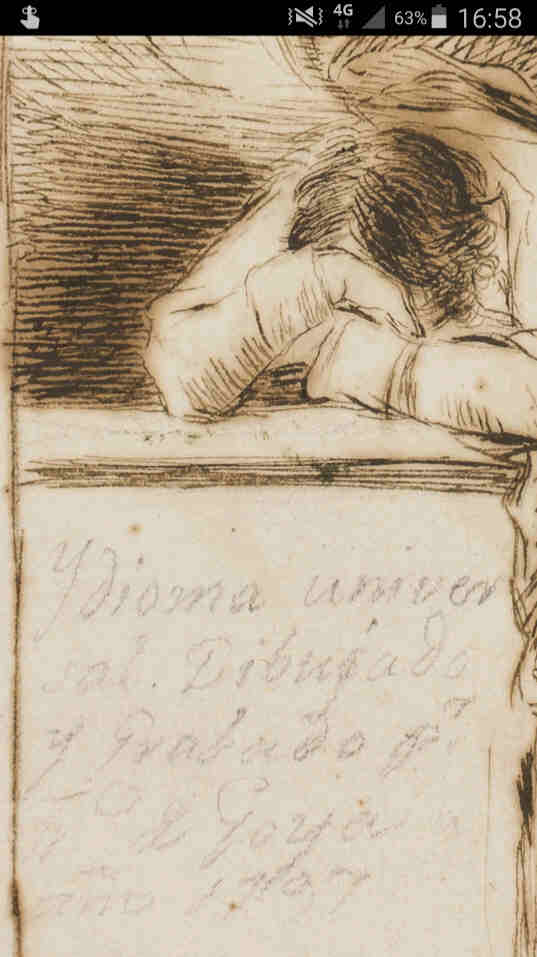 4G 63% 16:58
Ydioma univer
sal. Dibujado
y Grabado pr.
Fco de Goya
año 1797